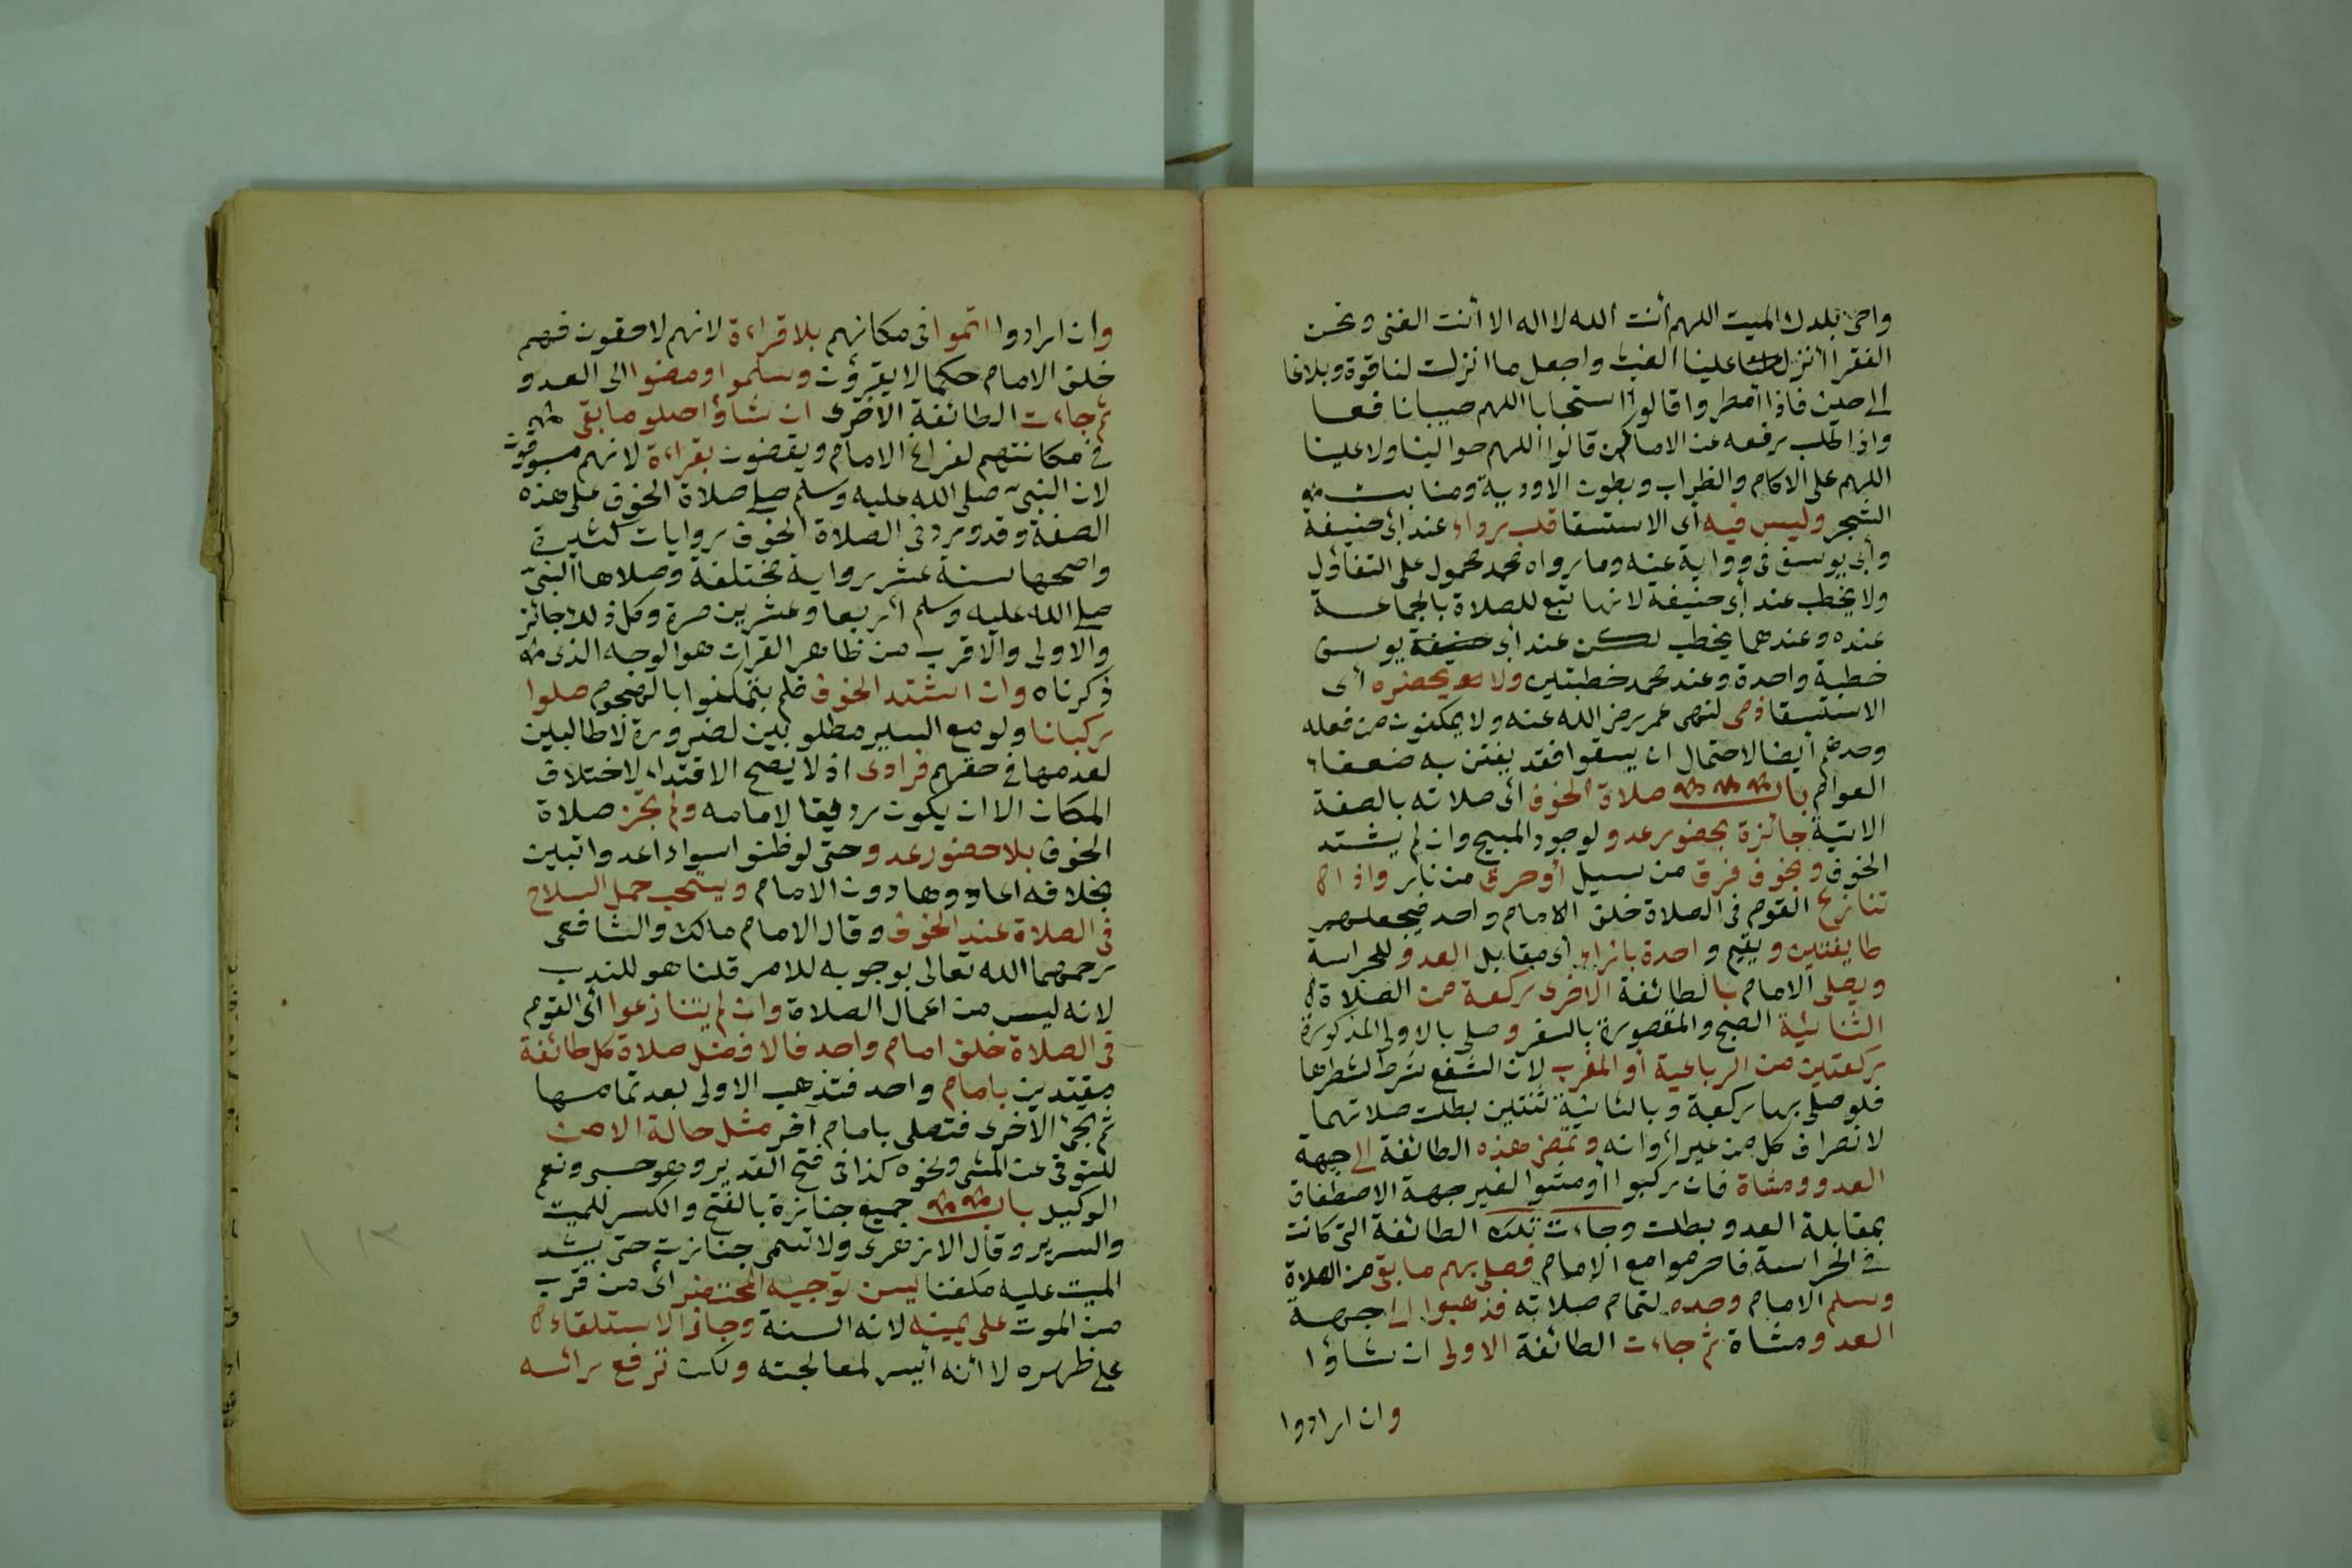 واحى بلدك الميت اللهم أنت الله لا اله الا أنت الغنى ونحن
الفقرا أنزل علينا الغيث واجعل ما انزلت لنا قوة وبلاغا
الى حين فاذا أمطروا قالوا استحبابا اللهم صيبا نافعا
واذا طلب رفعه عن الاماكن قالوا اللهم حوالينا ولا علينا
اللهم على الاكام والظراب وبطون الاودية ومنابت
الشجر وليس فيه أى الاستسقا قلب رداء عند ابى حنيفة
وأبى يوسف فى رواية عنه وما رواه محمد محمول على التفاؤل
ولا يخطب عند أبى حنيفة لانها تبع للصلاة بالجماعة
عنده وعندهما يخطب لكن عند أبى حنيفة يوسف
خطبة واحدة وعند محمد خطبتين ولا يحضره أى
الاستسقا ذمى لنهى عمر رضى الله عنه ولا يمكنون من فعله
وحدهم أيضا لاحتمال ان يسقوا فقد يفتن به ضعفاء
العوام باب صلاة الخوف أى صلاته بالصفة
الاتية جائزة بحضور عدو لوجود المبيح وان لم يشتد
الخوف وبخوف غرق من سيل أو حرق من نار واذا
تنازع القوم فى الصلاة خلف الامام واحد فيجعلهم
طايفتين ويقيم واحدة بازاء أى مقابل العدو للحراسة
ويصلى الامام بالطائفة الاخرى ركعة من الصلاة
الثنائية الصبح والمقصورة بالسفر وصلى بالاولى المذكورة
ركعتين من الرباعية أو المغرب لان الشفع شرط لشطرها
فلو صلى بها ركعة وبالثانية ثنتين بطلت صلاتهما
لانصراف كل من غير أوانه وتمضى هذه الطائفة الى جهة
العدو ومشاة فان ركبوا أو مشوا لغير جهة الاصطفاف
بمقابلة العدو بطلت وجاءت تلك الطائفة التى كانت
فى الحراسة فاحرموا مع الامام فصلى بهم ما بقى من الصلاة
وسلم الامام وحده لتمام صلاته فذهبوا الى جهة
العدو ومشاة ثم جاءت الطائفة الاولى ان شاؤا
وان ارادوا
وان ارادوا اتموا فى مكانهم بلا قراءة لانهم لاحقون فهم
خلف الامام حكما لا يقرؤن وسلموا ومضوا الى العدو
ثم جاءت الطائفة الاخرى ان شاؤا صلو ما بقى
فى مكانتهم لفراغ الامام ويقضون بقراءة لانهم مسبوقون
لان النبى صلى الله عليه وسلم صلى صلاة الخوف على هذه
الصفة وقد ورد فى الصلاة الخوف روايات كثيرة
واصحها ستة عشر رواية مختلفة وصلاها النبى
صلى الله عليه وسلم أربعا وعشرين مرة وكل ذلك جائز
والاولى والاقرب من ظاهر القرآن هو الوجه الذى
ذكرناه وان اشتد الخوف فلم يتمكنوا بالهجوم صلوا
ركبانا ولو مع السير مطلوبين لضرورة لا طالبين
لعدمها فى حقهم فرادى اذ لا يصح الاقتداء لاختلاف
المكان الا ان يكون رديفا لامامه ولم تجز صلاة
الخوف بلا حضور عدو حتى لو ظنوا سوادا عدوا تبين
بخلافه اعادوها دون الامام ويستحب حمل السلاح
فى الصلاة عند الخوف وقال الامام مالك والشافعى
رحمهما الله تعالى بوجوبه للامر قلنا هو للندب
لانه ليس من اعمال الصلاة وان لم يتنازعوا أى القوم
فى الصلاة خلف امام واحد فالافضل صلاة كل طائفة
مقتدين بامام واحد فتذهب الاولى بعد تمامها
ثم تجئ الاخرى فتصلى بامام آخر مثل حالة الامن
للتوقى عن المشى ونحوه كذا فى فتح القدير وهو حسبى ونعم
الوكيل باب جميع جنازة بالفتح والكسر للميت
والسرير وقال الازهرى ولا تسمى جنازة حتى يشد
الميت عليه مكفنا يسن توجيه المحتضر أى من قرب
من الموت على يمينه لانه السنة وجاز الاستلقاء
على ظهره لا أنه أيسر لمعالجته ولكن ترفع رائسه